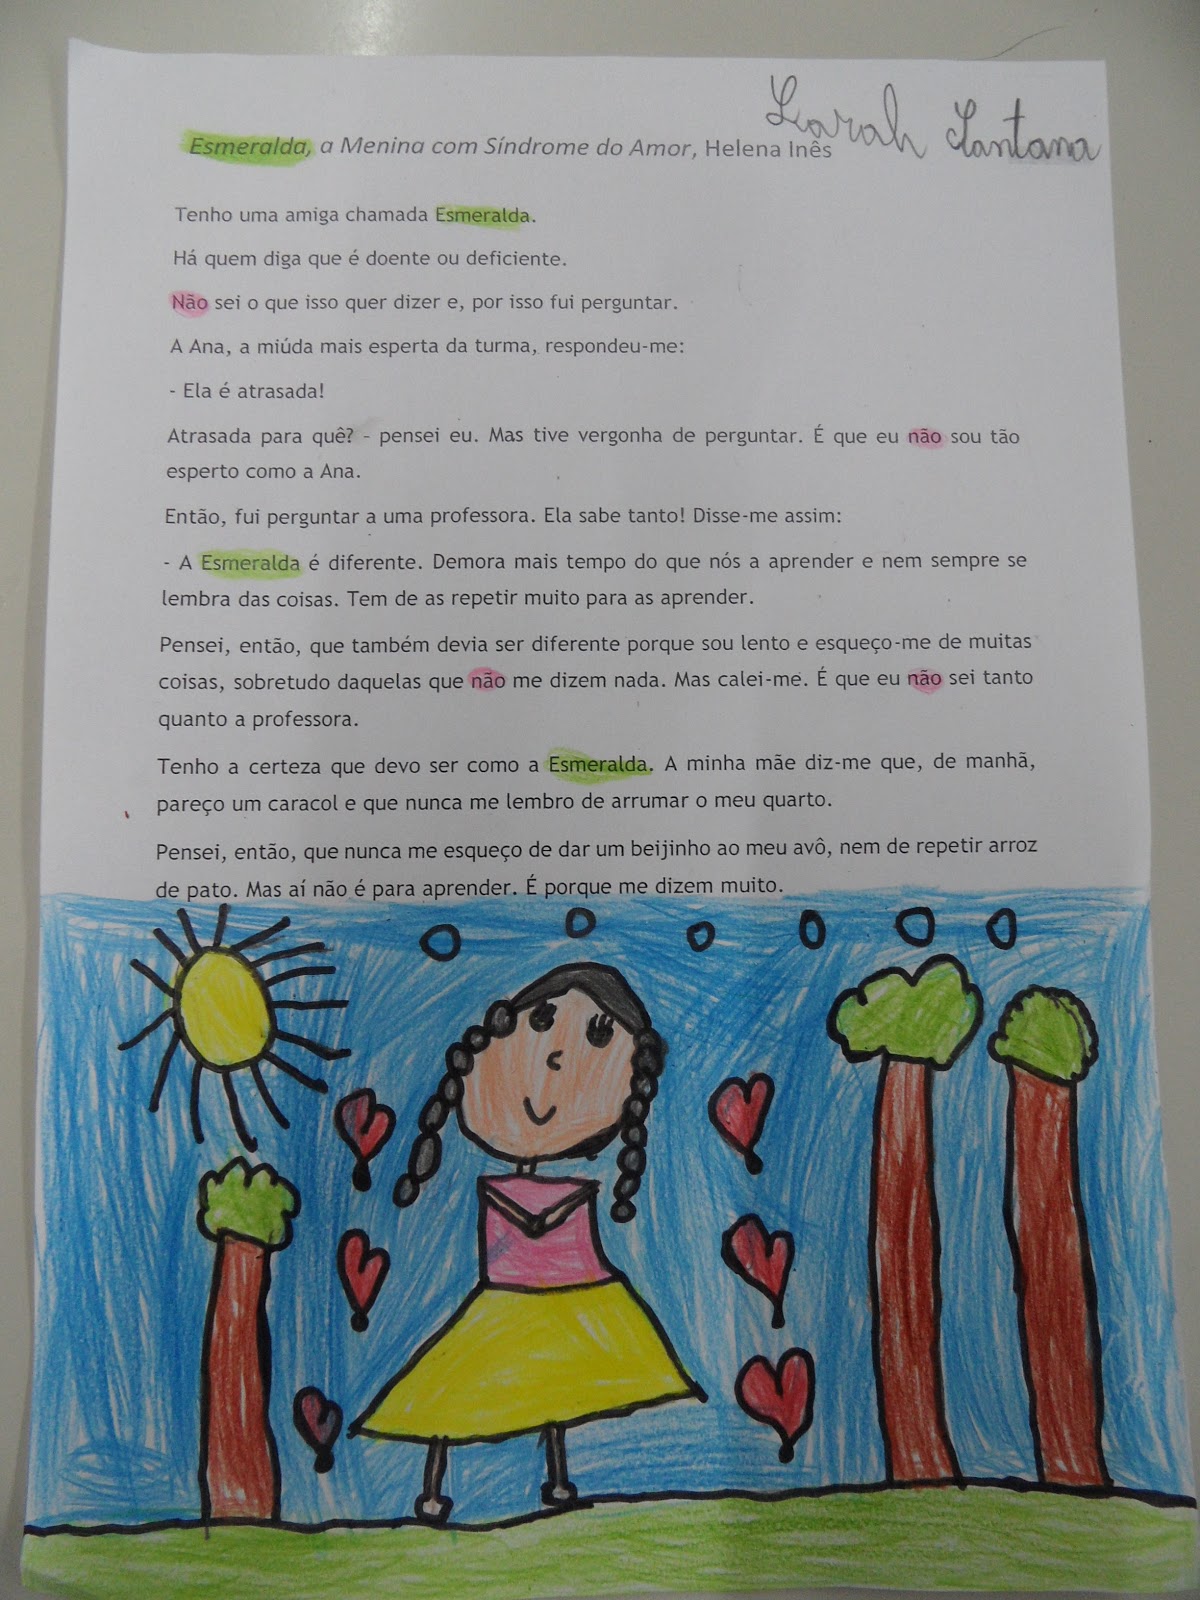 Larah Santana
Esmeralda, a Menina com Síndrome do Amor, Helena Inês
Tenho uma amiga chamada Esmeralda.
Há quem diga que é doente ou deficiente.
Não sei o que isso quer dizer e, por isso fui perguntar.
A Ana, a miúda mais esperta da turma, respondeu-me:
- Ela é atrasada!
Atrasada para quê? - pensei eu. Mas tive vergonha de perguntar. É que eu não sou tão
esperto como a Ana.
Então, fui perguntar a uma professora. Ela sabe tanto! Disse-me assim:
- A Esmeralda é diferente. Demora mais tempo do que nós a aprender e nem sempre se
lembra das coisas. Tem de as repetir muito para as aprender.
Pensei, então, que também devia ser diferente porque sou lento e esqueço-me de muitas
coisas, sobretudo daquelas que não me dizem nada. Mas calei-me. É que eu não sei tanto
quanto a professora.
Tenho a certeza que devo ser como a Esmeralda. A minha mãe diz-me que, de manhã,
pareço um caracol e que nunca me lembro de arrumar o meu quarto.
Pensei, então, que nunca me esqueço de dar um beijinho ao meu avô, nem de repetir arroz
de pato. Mas aí não é para aprender. É porque me dizem muito.